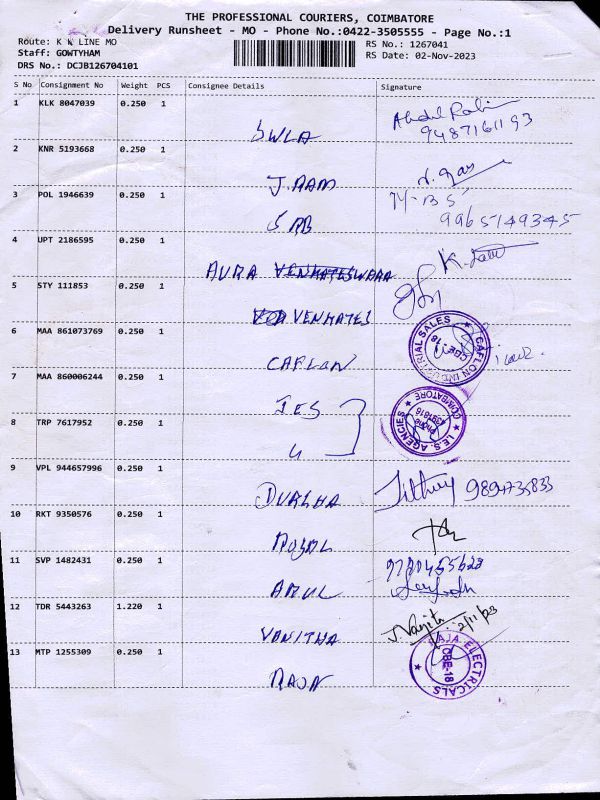 THE PROFESSIONAL COURIERS, COIMBATORE
Delivery Runsheet - MO - Phone No.:0422-3505555 - Page No.:1
Route: K K LINE MO
RS No.: 1267041
Staff: GOWTYHAM
RS Date: 02-Nov-2023
DRS No.: DCJB126704101
S No Consignment No Weight PCS Consignee Details Signature
1 KLK 8047039 0.250 1
SWLA 9487161193
2 KNR 5193668 0.250 1
J.RAM
3 POL 1946639 0.250 1
SRB 9965149345
4 UPT 2186595 0.250 1
AURA
5 STY 111853 0.250 1
VENKATES
6 MAA 861073769 0.250 1
CAFLON
CAFLON INDUSTRIAL SALES
CBE-18
7 MAA 860006244 0.250 1
IES
I.E.S. AGENCIES
COIMBATORE
Phone
4391616
8 TRP 7617952 0.250 1
9 VPL 944657996 0.250 1
DURGHA
10 RKT 9350576 0.250 1
11 SVP 1482431 0.250 1
AMUL
12 TDR 5443263 1.220 1
VANITHA J. Vanitha 2/11/23
13 MTP 1255309 0.250 1
RAJA ELECTRICALS
CBE-18